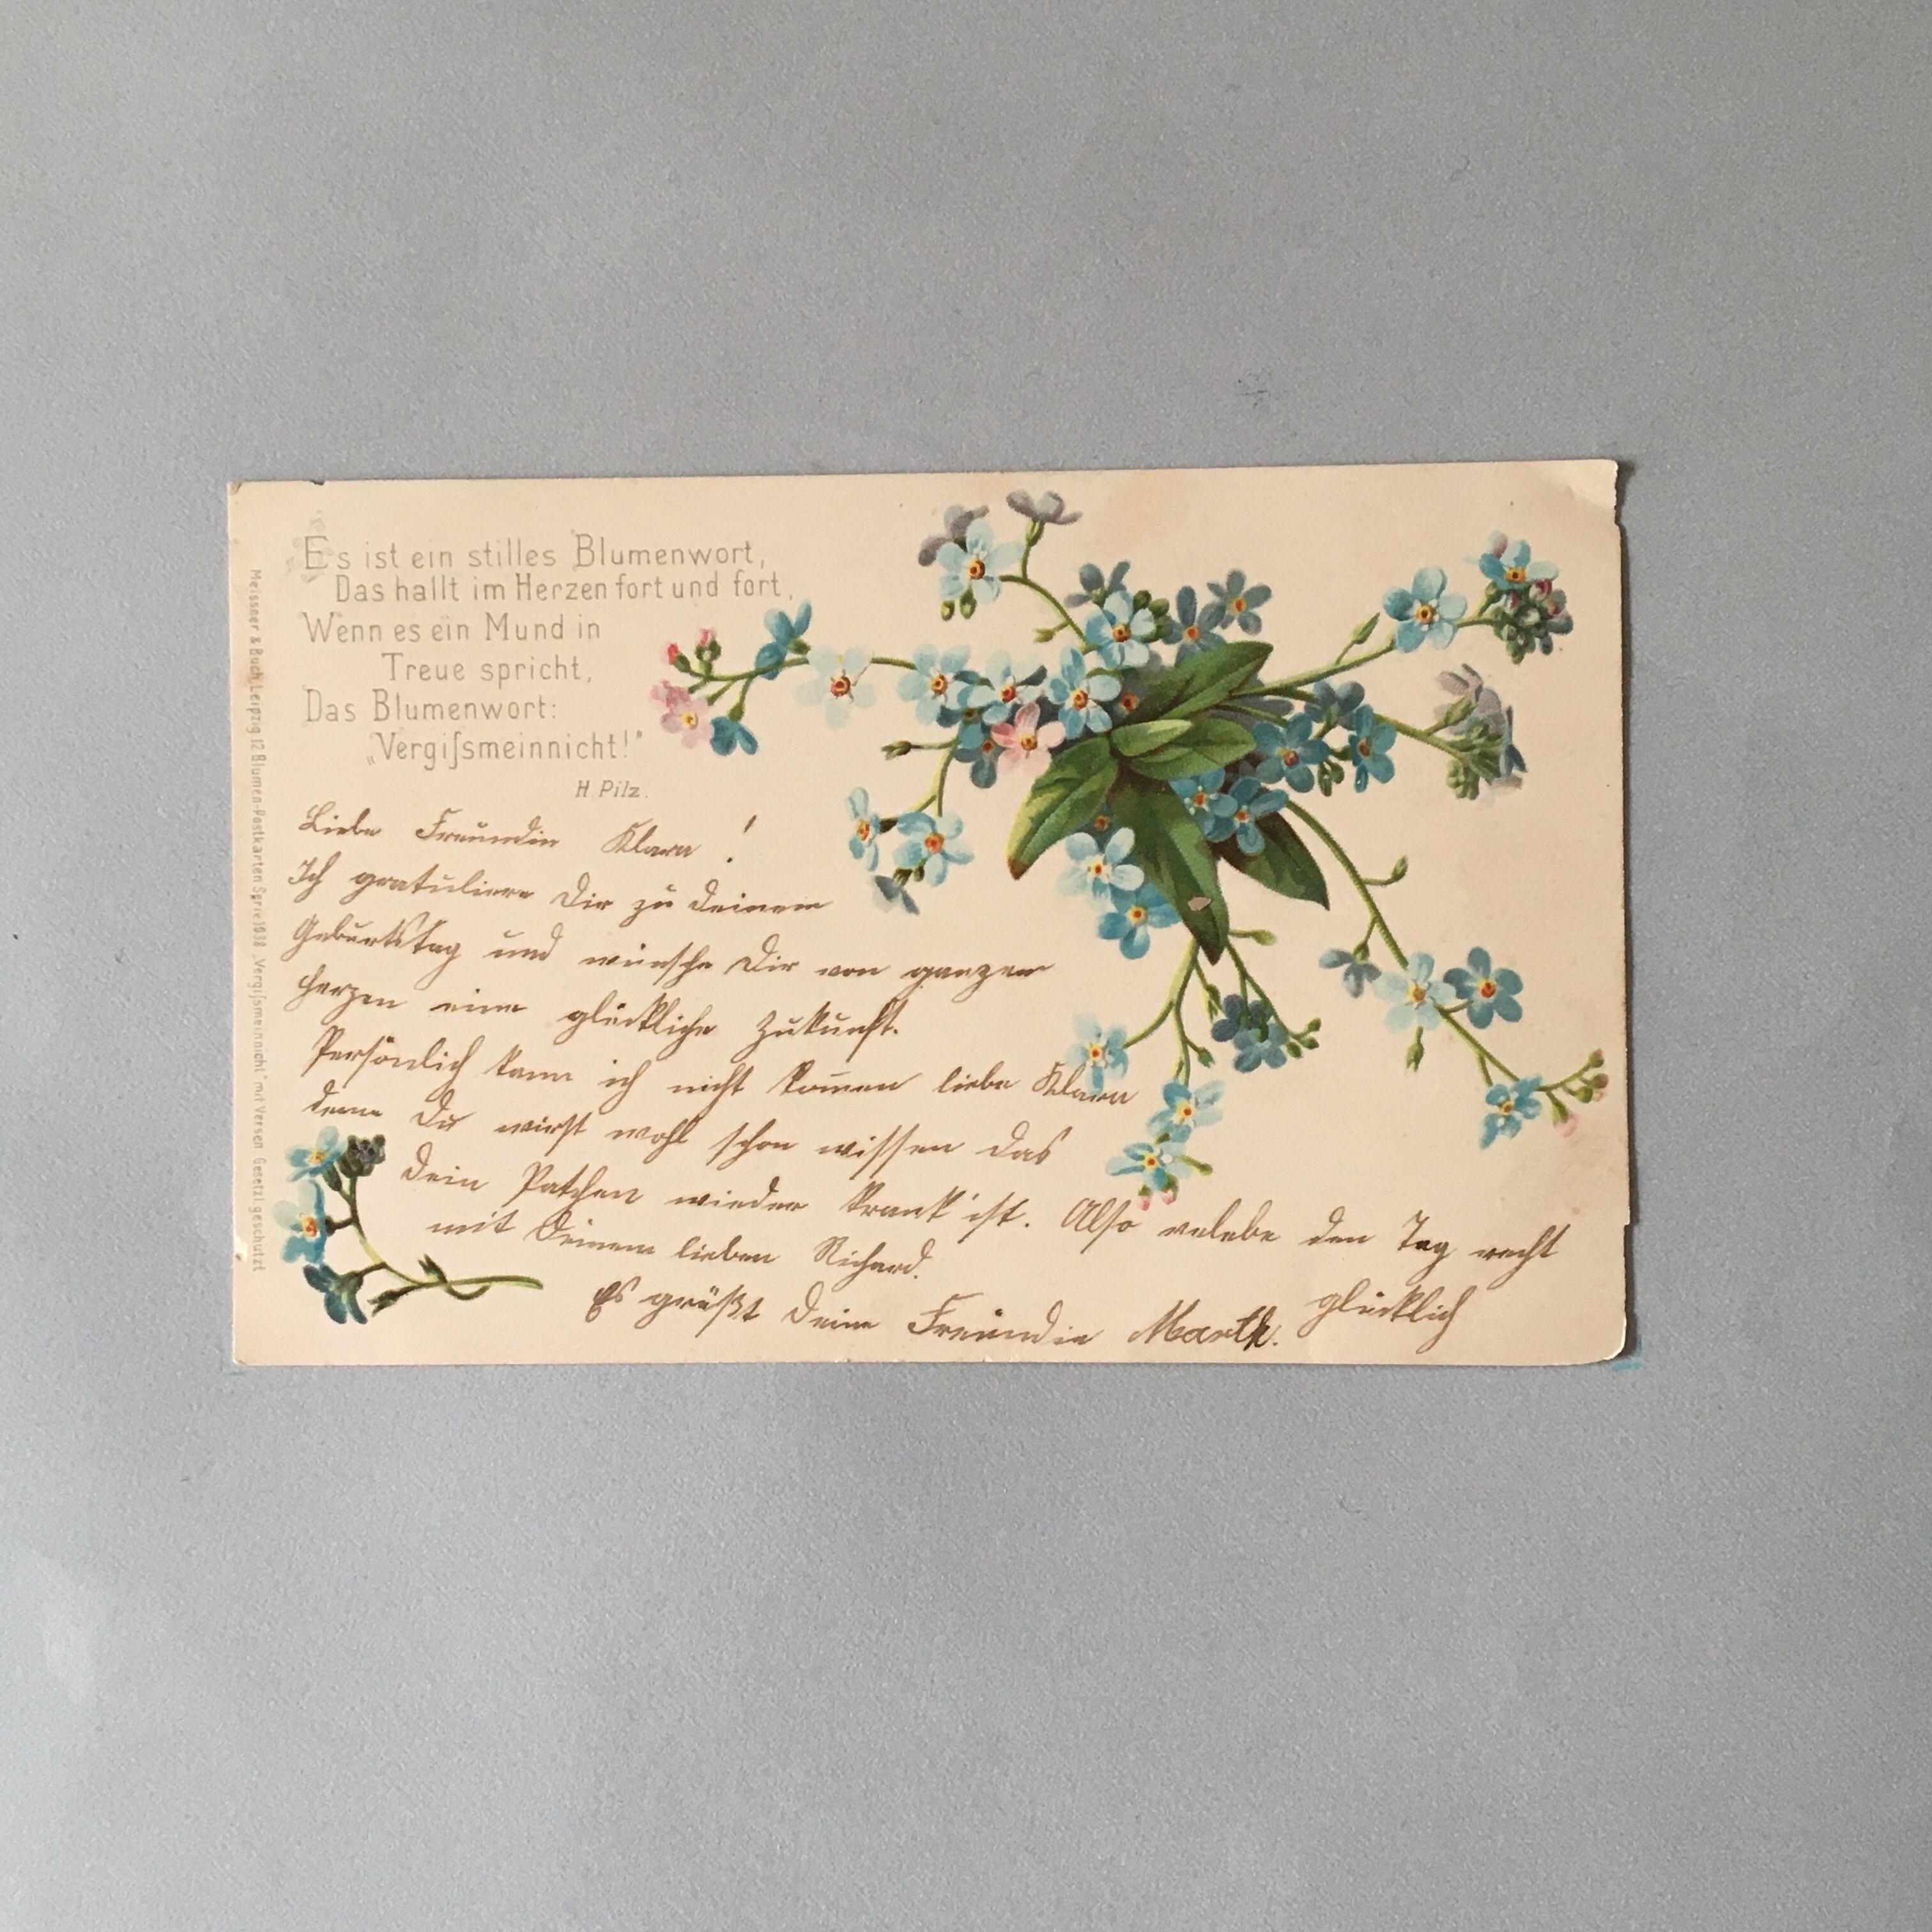 Es ist ein stilles Blumenwort,
Das hallt im Herzen fort und fort,
Wenn es ein Mund in
Treue spricht,
Das Blumenwort:
„Vergiſsmeinnicht!"
H. Pilz.
Liebe Freundin Klara!
Ich gratuliere Dir zu deinem
Geburtstag und wünsche Dir von ganzem
Herzen eine glückliche Zukunft.
Persönlich kann ich nicht kom̄en liebe Klara
denn Du wirst wohl schon wissen das
Dein Patchen wieder krank ist. Also verlebe den Tag recht
glücklich
mit Deinem lieben Richard.
Es grüßt Deine Freundin Marth.
Meissner & Buch, Leipzig. 12 Blumen-Postkarten Serie 1038 „Vergiſsmeinnicht" mit Versen. Gesetzl. geschützt